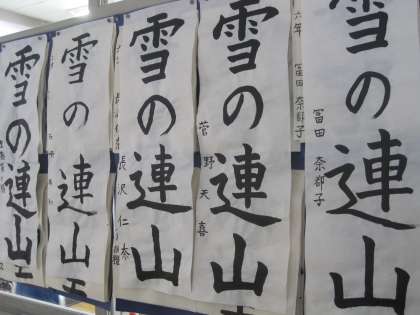 雪の連山
冨田 奈都子
雪の連山
六年 冨田 奈都子
菅野 天喜
雪の連山
長沢 仁奈
雪の連山
雪の連山